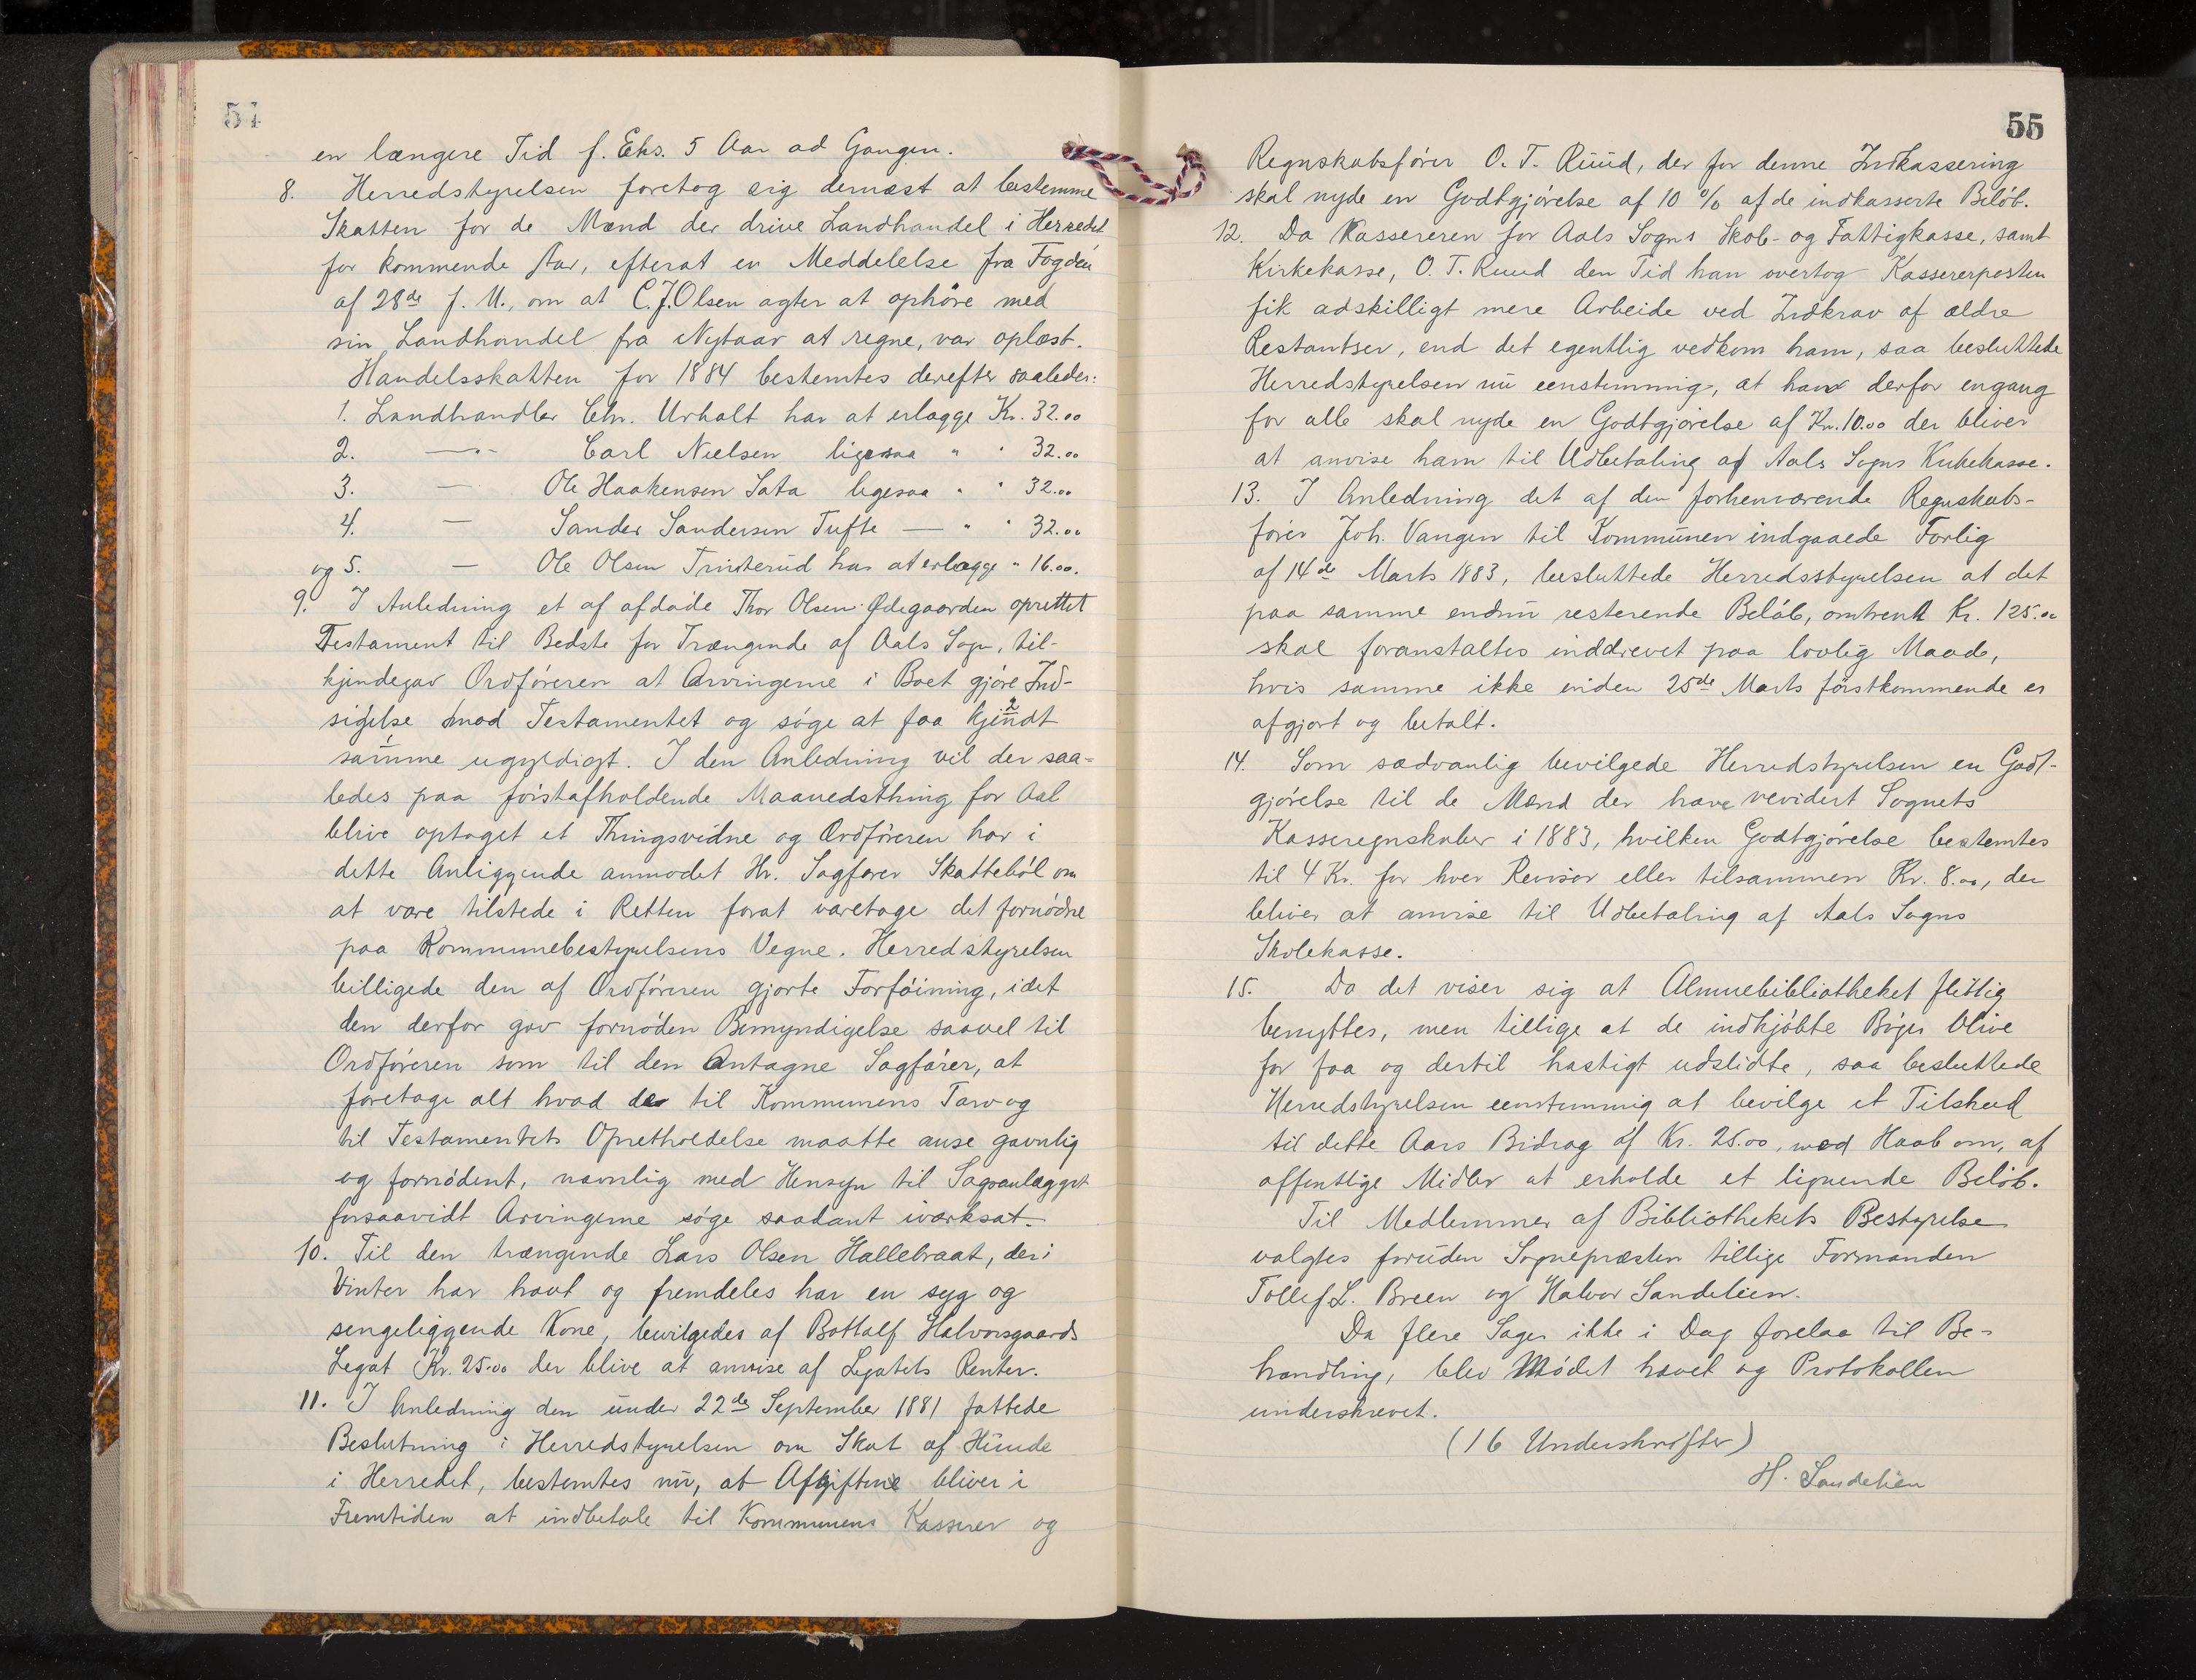 54
en længere Tid f. Eks. 5 Aar ad Gangen.
8. Herredstyrelsen foretog sig dernæst at bestemme
Skatten for de Mænd der drive Landhandel i Herredet
for kommende Aar, efterat en Meddelelse fra Fogden
af 28de f. M., om at C. J. Olsen agter at ophøre med
sin Landhandel fra Nytaar at regne, var oplæst.
Handelsskatten for 1884 bestemtes derefter saaledes:
1. Landhandler Chr. Urholt har at erlægge Kr. 32.00
2. —„— Carl Nielsen ligesaa " " 32.00
3. — Ole Haakensen Sata ligesaa " " 32.00
4. — Sander Sandersen Tufte — " " 32.00
og 5. — Ole Olsen Trinterud har at erlægge " 16.00.
9. I Anledning et af afdøde Thor Olsen Ødegaarden oprettet
Testament til Bedste for Trængende af Aals Sogn, til-
kjendegav Ordføreren at Arvingerne i Boet gjøre Ind-
sigelse mod Testamentet og søge at faa kjindt
samme ugyldigt. I den Anledning vil der saa-
ledes paa førstafholdende Maanedsthing for Aal
blive optaget et Thingsvidne og Ordføreren har i
dette Anliggende anmodet Hr. Sagfører Skattebøl om
at være tilstede i Retten forat varetage det fornødne
paa Kommunebestyrelsens Vegne. Herredstyrelsen
billigede den af Ordføreren gjorte Forføining, idet
den derfor gav fornøden Bemyndigelse saavel til
Ordføreren som til den Antagne Sagfører, at
foretage alt hvad der til Kommunens Tarv og
til Testamentets Opretholdelse maatte anse gavnlig
og fornødent, navnlig med Hensyn til Sagsanlægget
forsaavidt Arvingerne søge saadant iværksat.
10. Til den trængende Lars Olsen Hallebraat, der i
Vinter har havt og fremdeles har en syg og
sengeliggende Kone, bevilgedes af Bottolf Halvorsgaards
Legat Kr. 25.00 der blive at anvise af Legatets Renter.
11. I Anledning den under 22de September 1881 fattede
Beslutning i Herredstyrelsen om Skat af Hunde
i Herredet, bestemtes nu, at Afgiftene bliver i
Fremtiden at indbetale til Kommunens Kasserer og
55
Regnskabsfører O. T. Ruud, der for denne Indkassering
skal nyde en Godtgjørelse af 10 % af de indkasserte Beløb.
12. Da Kassereren for Aals Sogns Skole- og Fattigkasse, samt
Kirkekasse, O. T. Ruud den Tid han overtog Kassererposten
fik adskilligt mere Arbeide ved Indkrav af ældre
Restantser, end det egentlig vedkom ham, saa besluttede
Herredstyrelsen nu eenstemmig, at han derfor engang
for alle skal nyde en Godtgjørelse af Kr. 10.00 der bliver
at anvise ham til Udbetaling af Aals Sogns Kirkekasse.
13. I Anledning det af den forhenværende Regnskabs-
fører Joh. Vangen til Kommunen indgaaede Forlig
af 14de Marts 1883, besluttede Herredsstyrelsen at det
paa samme endnu resterende Beløb, omtrent Kr. 125.00
skal foranstaltes inddrevet paa lovlig Maade,
hvis samme ikke inden 25de Marts førstkommende er
afgjort og betalt.
14. Som sædvanlig bevilgede Herredstyrelsen en Godt-
gjørelse til de Mænd der have revidert Sognets
Kasseregnskaber i 1883, hvilken Godtgjørelse bestemtes
til 4 Kr. for hver Revisor eller tilsammen Kr. 8.00, der
bliver at anvise til Udbetaling af Aals Sogns
Skolekasse.
15. Da det viser sig at Almuebibliotheket flittig
benyttes, men tillige at de indkjøbte Bøger blive
for faa og dertil hastigt udslidte, saa besluttede
Herredstyrelsen eenstemmig at bevilge et Tilskud
til dette Aars Bidrag af Kr. 25.00, med Haab om, af
offentlige Midler at erholde et lignende Beløb.
Til Medlemmer af Bibliothekets Bestyrelse
valgtes foruden Sognepræsten tillige Formanden
Tollef L. Breen og Halvor Sandelien.
Da flere Sager ikke i Dag forelaa til Be-
handling, blev Mødet hævet og Protokollen
underskrevet.
(16 Underskrifter)
H. Sandelien